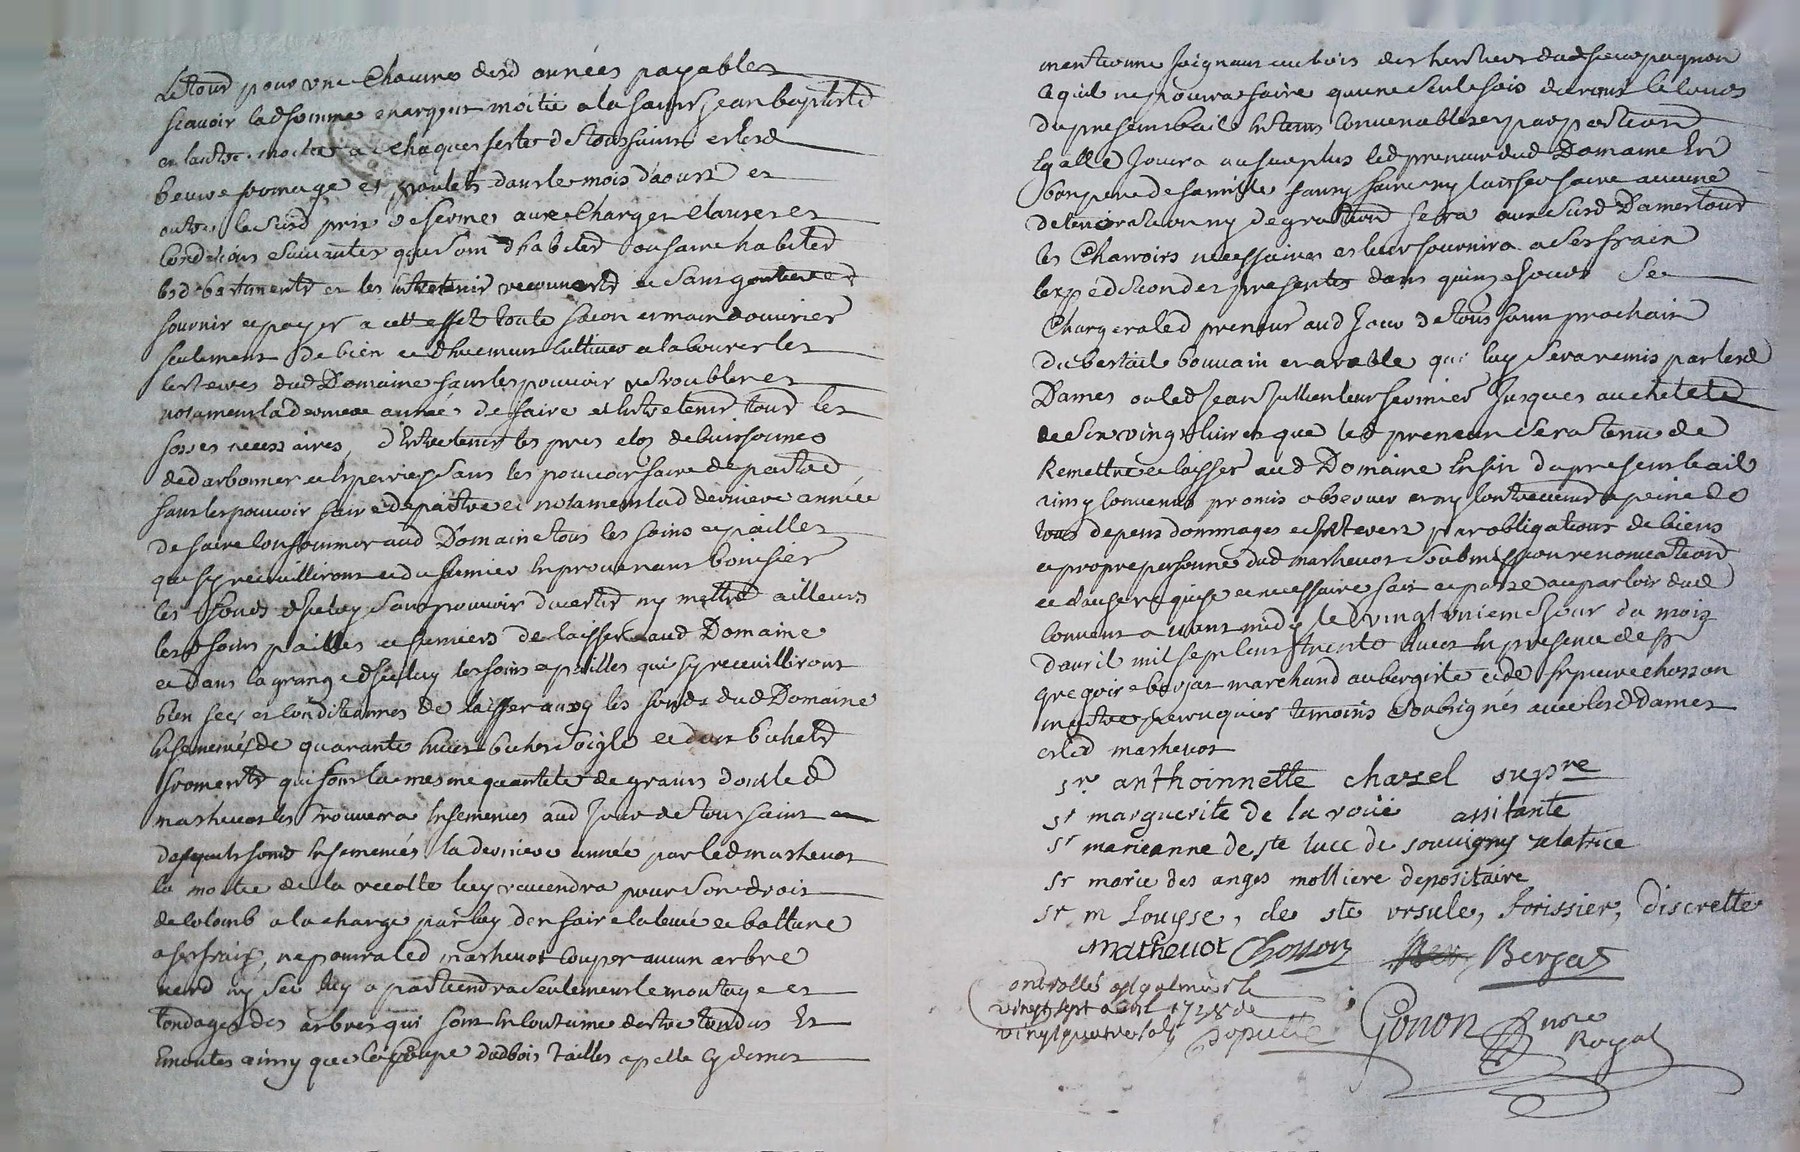 Le tout pour une Chacunes desd années payables
scavoir lad somme en argent moitié a la saint jean baptiste
et lautre moitié a chaques festes de toussaint et lesd
beurre fromage et poulets dans le mois daoust et
outre le susd prix de ferme aux Charges Clauses et
Conditions suivantes qui sont dhabiter ou faire habiter
les d batiments et les entretenir recouverts et sans goutieres
fournir et payer a cet effet toute facon et main douvrier
seulement de bien et dhuement cultiver et labourer les
les terres dud Domaine sans les pouvoir retroubler et
notament la derniere année de faire et entretenir tous les
fosses necessaires, dentretenir les pres clos de buissonnes
de darbonner et esperrer sans les pouvoir faire depaitre
sans les pouvoir faire depaitre et notament lad derniere année
de faire consommer aud Domaine tous les foins et pailles
qui sy receuilliront et du fumier en provenant bonifier
les fonds diceluy sans pouvoir divertir ny mettre ailleurs
lesd foins pailles et fumiers de laisser aud Domaine
et dans la grange diceluy les foins et pailles qui sy receuilliront
bien secs et conditionnes de laisser aussy les fonds dud Domaine
ensemencés de quarante huit bichets soigle et dun bichet
froment qui sont la mesme quantité de grains dont led
mathevot les trouvera ensemences aud jour de toussaint
desquels fonds ensemencés la derniere année par led mathevot
la moitie de la recolte luy reviendra pour son droit
de colomb a la charge par luy den faire la levée et batture
a ses frais, ne pourra led mathevot couper aucun arbre
verd ny sec luy apartiendra seulement le montage et
tondages des arbres qui sont en coutume destre tondus Et
Emontes ainsy que la Coupe dud bois tailles apellé
mentionné joignant au bois des heritiers dud sieur pagnon
ce quil ne poura faire quune seule fois durant le cours
du present bail En tems convenables et par portion
Egalle Jouira au surplus led preneur dud Domaine En
bon pere de famille sans y faire ny laisser faire aucune
deterioration ny degradation fera aux susd Dames tous
les Charrois necessaires et leur fournira a ses frais
lexpedition des presentes dans quinze jours Se
Chargera led preneur aud Jour de toussaint prochain
du bestail bouvain et arable qui luy sera remis par lesd
Dames ou led jean Jullien leur fermier Jusques au chetel
de six vingt huit que led preneur sera tenu de
Remettre et laisser aud Domaine En fin du present bail
ainsy convenus promis observer et ny contrevenir a peine de
tous depens dommages et interets par obligations de biens
et propre personne dud mathevot soubmission renonciation
et clause requise et necessaire fait et passé au parloir dud
Couvent avant midy le vingt unieme jour du mois
davril mil sept cent trente huict En presence de sr
gregoire berjat marchand aubergiste et de sr pierre chosson
maitre perruquier temoins soubsignés avec lesd Dames
et led mathevot
sr anthoinnette chazel supre
sr marguerite de la roüe assitante
sr marieanne de ste luce de souvigny zelatrice
sr marie des anges molliere depositaire
sr m Louysse, de ste ursule, forissier, discrette
mathevot Chosson Berjat
Controllé a st galmier le
vingt sept avril 1738 de
vingt quatre sols
Gonon nore
Royal